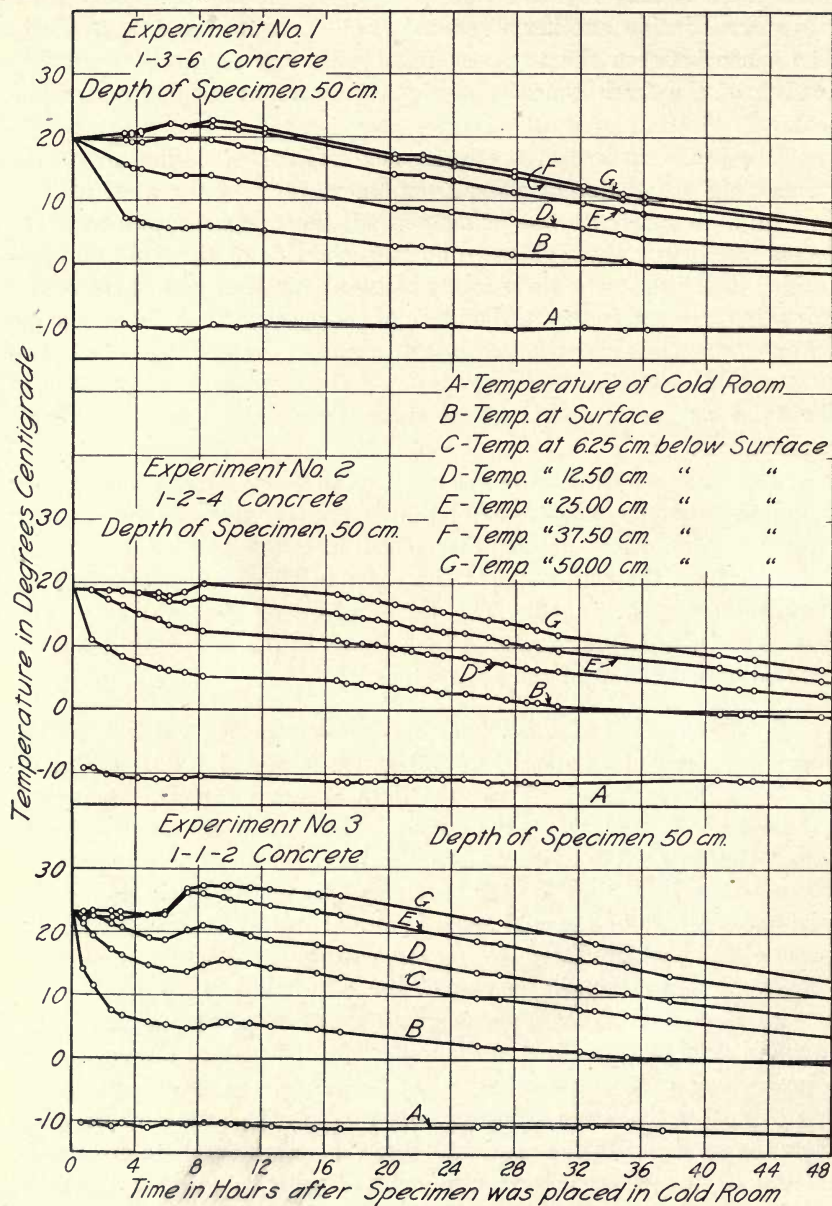 Experiment No. 1
1-3-6 Concrete
Depth of Specimen 50 cm.
30
20
10
0
-10
F
G
C
D
E
B
A
Temperature in Degrees Centigrade
A-Temperature of Cold Room
B-Temp. at Surface
C-Temp. at 6.25 cm. below Surface
D-Temp. " 12.50 cm. " "
E-Temp. " 25.00 cm. " "
F-Temp. " 37.50 cm. " "
G-Temp. " 50.00 cm. " "
Experiment No. 2
1-2-4 Concrete
Depth of Specimen 50 cm.
30
20
10
0
-10
G
E
D
B
A
Experiment No. 3
1-1-2 Concrete
Depth of Specimen 50 cm.
30
20
10
0
-10
G
E
D
C
B
A
0 4 8 12 16 20 24 28 32 36 40 44 48
Time in Hours after Specimen was placed in Cold Room